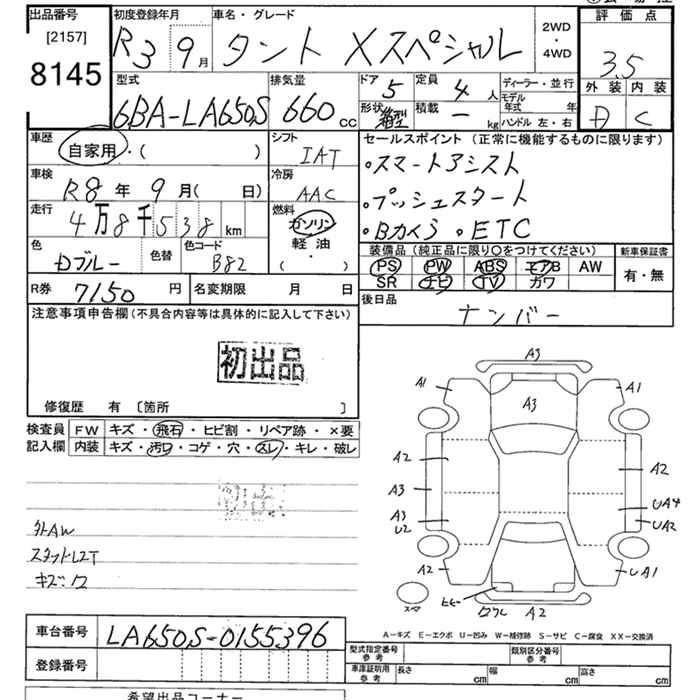 出品番号 初度登録年月 車名・グレード 2WD・4WD 評価点
[2157]
8145
R3 9月 タント Xスペシャル 3.5
型式 排気量 ドア 定員 ディーラー・並行 外装 内装
6BA-LA650S 660cc 5 4人 モデル年式 年 D C
形状 箱型 積載 ー kg ハンドル 左・右
車歴 自家用・( ) シフト IAT セールスポイント(正常に機能するものに限ります)
・スマートアシスト
車検 R8年 9月( 日) 冷房 AAC
・プッシュスタート
走行 4万8千538km 燃料 ガソリン 軽油 ( ・ )
・Bカメラ ・ETC
色 Dブルー 色替 色コード B82
装備品(純正品に限り○をつけてください) 新車保証書
PS PW ABS エアB AW 有・無
SR ナビ TV カワ
R券 7150円 名変期限 月 日
後日品 ナンバー
注意事項申告欄(不具合内容等は具体的に記入して下さい)
初出品
修復歴 有 〔箇所 〕
検査員記入欄 FW キズ・飛石・ヒビ割・リペア跡・×要
内装 キズ・汚れ・コゲ・穴・スレ・キレ・破レ
A3
A1 A1
A3
A2 A2
A3
A3 UA4
U2 UA2
A2 UA1
ヒビ A2
スマ
外AW
キズ:
A-キズ E-エクボ U-凹み W-補修跡 S-サビ C-腐食 XX-交換済
車台番号 LA650S-0155396
登録番号
型式指定番号 参考 類別区分番号 参考
車庫証明用 参考 長さ cm 幅 cm 高さ cm
希望出品コーナー